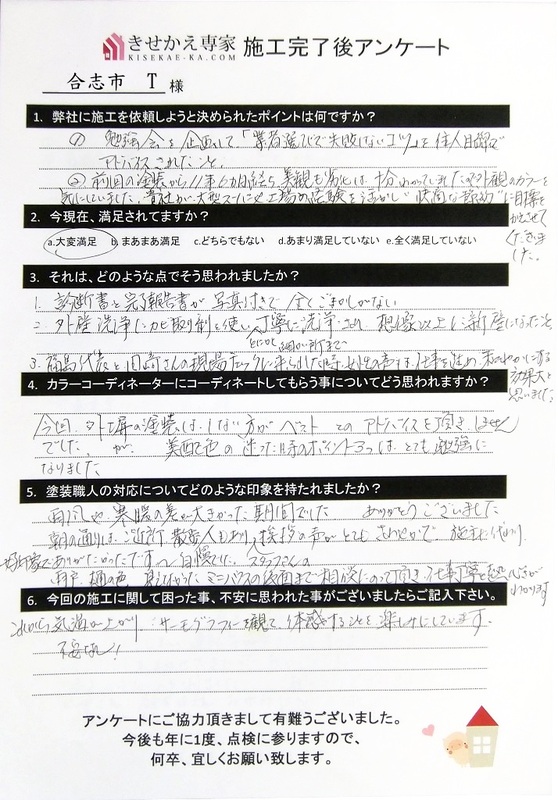 きせかえ専家
KISEKAE-KA.COM
施工完了後アンケート
合志市 T 様
1. 弊社に施工を依頼しようと決められたポイントは何ですか？
① 勉強会を企画して、「業者選びで失敗しないコツ」を住人目線で
アドバイスされたこと。
② 前回の塗装から11年6カ月経ち、美観も劣化は十分わかってましたので外観のカラーを
気にしていました。貴社が大型スーパーや工場の経験を活かし
2. 今現在、満足されてますか？
a.大変満足 b.まあまあ満足 c.どちらでもない d.あまり満足していない e.全く満足していない
3. それは、どのような点でそう思われましたか？
1. 診断書と完了報告書が写真付きで全てごまかしがない
2. 外壁洗浄にカビ取り剤を使い丁寧に洗浄され、想像以上に新壁になったこと
とにかく細かい所まで
3. 福島代表と
効果大と
思いました
4. カラーコーディネーターにコーディネートしてもらう事についてどう思われますか？
今回、外塀の塗装はしない方がベストとのアドバイスを頂き、しません
でした。が、美配色の迷った時のポイント3つは、とても勉強に
なりました
5. 塗装職人の対応についてどのような印象を持たれましたか？
雨風や寒暖の差が大きかった期間でした ありがとうございました
朝の通りは、ご近所、散歩人もあり、挨拶の声がとてもさわやかで、施主に代わり
好印象でありがたかったです〜自慢でした。スタッフさんの
雨戸、樋の色、
相談にのって頂き、仕事丁寧と
6. 今回の施工に関して困った事、不安に思われた事がございましたらご記入下さい。
これから気温が上がり、サーモグラフィーを観て、体感することを楽しみにしています。
不安なし！
アンケートにご協力頂きまして有難うございました。
今後も年に1度、点検に参りますので、
何卒、宜しくお願い致します。